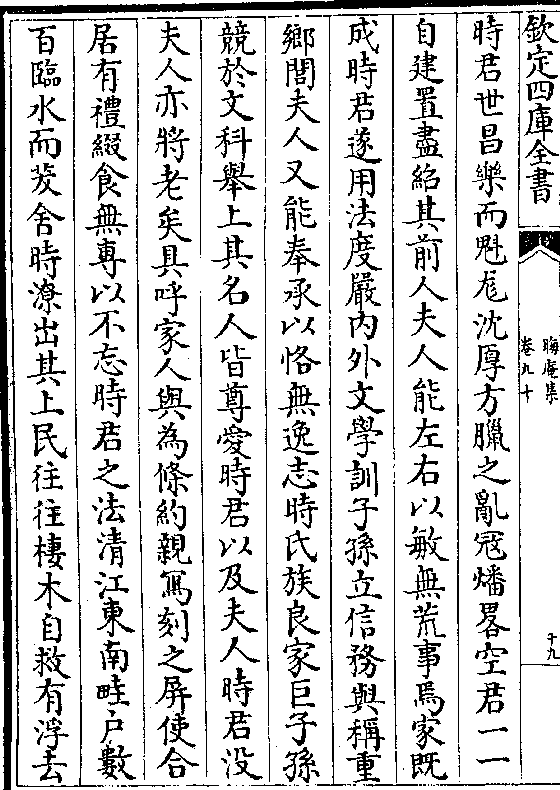 欽定四庫全書
晦庵集
卷九十
十九
時君世昌樂而魁尨沈厚方臘之亂冦燔畧空君一一
自建置盡紿其前人夫人能左右以敏無荒事焉家既
成時君遂用法度嚴内外文學訓子孫立信務與稱重
鄉閭夫人又能奉承以恪無逸志時氏族良家巨子孫
競於文科舉上其名人皆尊愛時君以及夫人時君没
夫人亦將老矣具呼家人與為條約親寫刻之屏使合
居有禮綴食無專以不忘時君之法清江東南畦户數
百臨水而茇舍時潦出其上民往往棲木自救有浮去